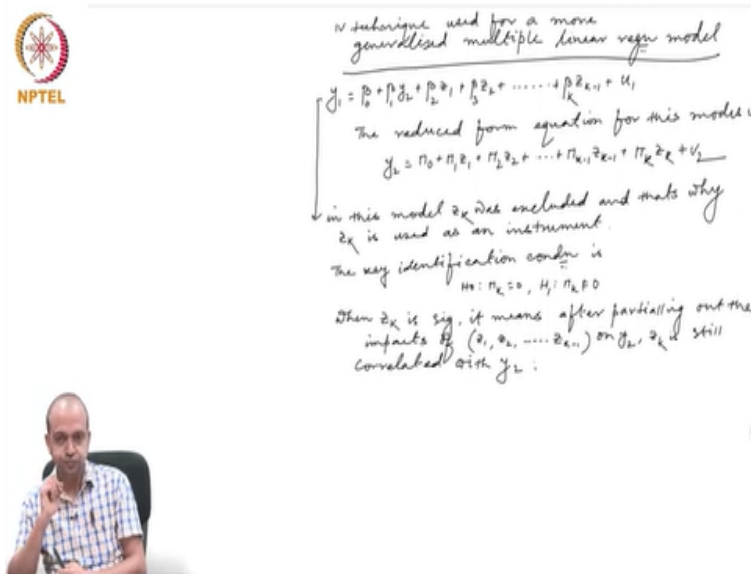 NPTEL
IV technique used for a more
generalised multiple linear regn model
y₁ = β₀ + β₁y₂ + β₂z₁ + β₃z₂ + ...... + βₖzₖ₋₁ + u₁
The reduced form equation for this model i
y₂ = π₀ + π₁z₁ + π₂z₂ + ... + πₖ₋₁zₖ₋₁ + πₖzₖ + v₂
in this model zₖ was excluded and thats why
zₖ is used as an instrument.
The key identification condn is
H₀: πₖ = 0, H₁: πₖ ≠ 0
When zₖ is sig, it means after partialling out the
impacts of (z₁, z₂, ..... zₖ₋₁) on y₂, zₖ is still
correlated with y₂ :